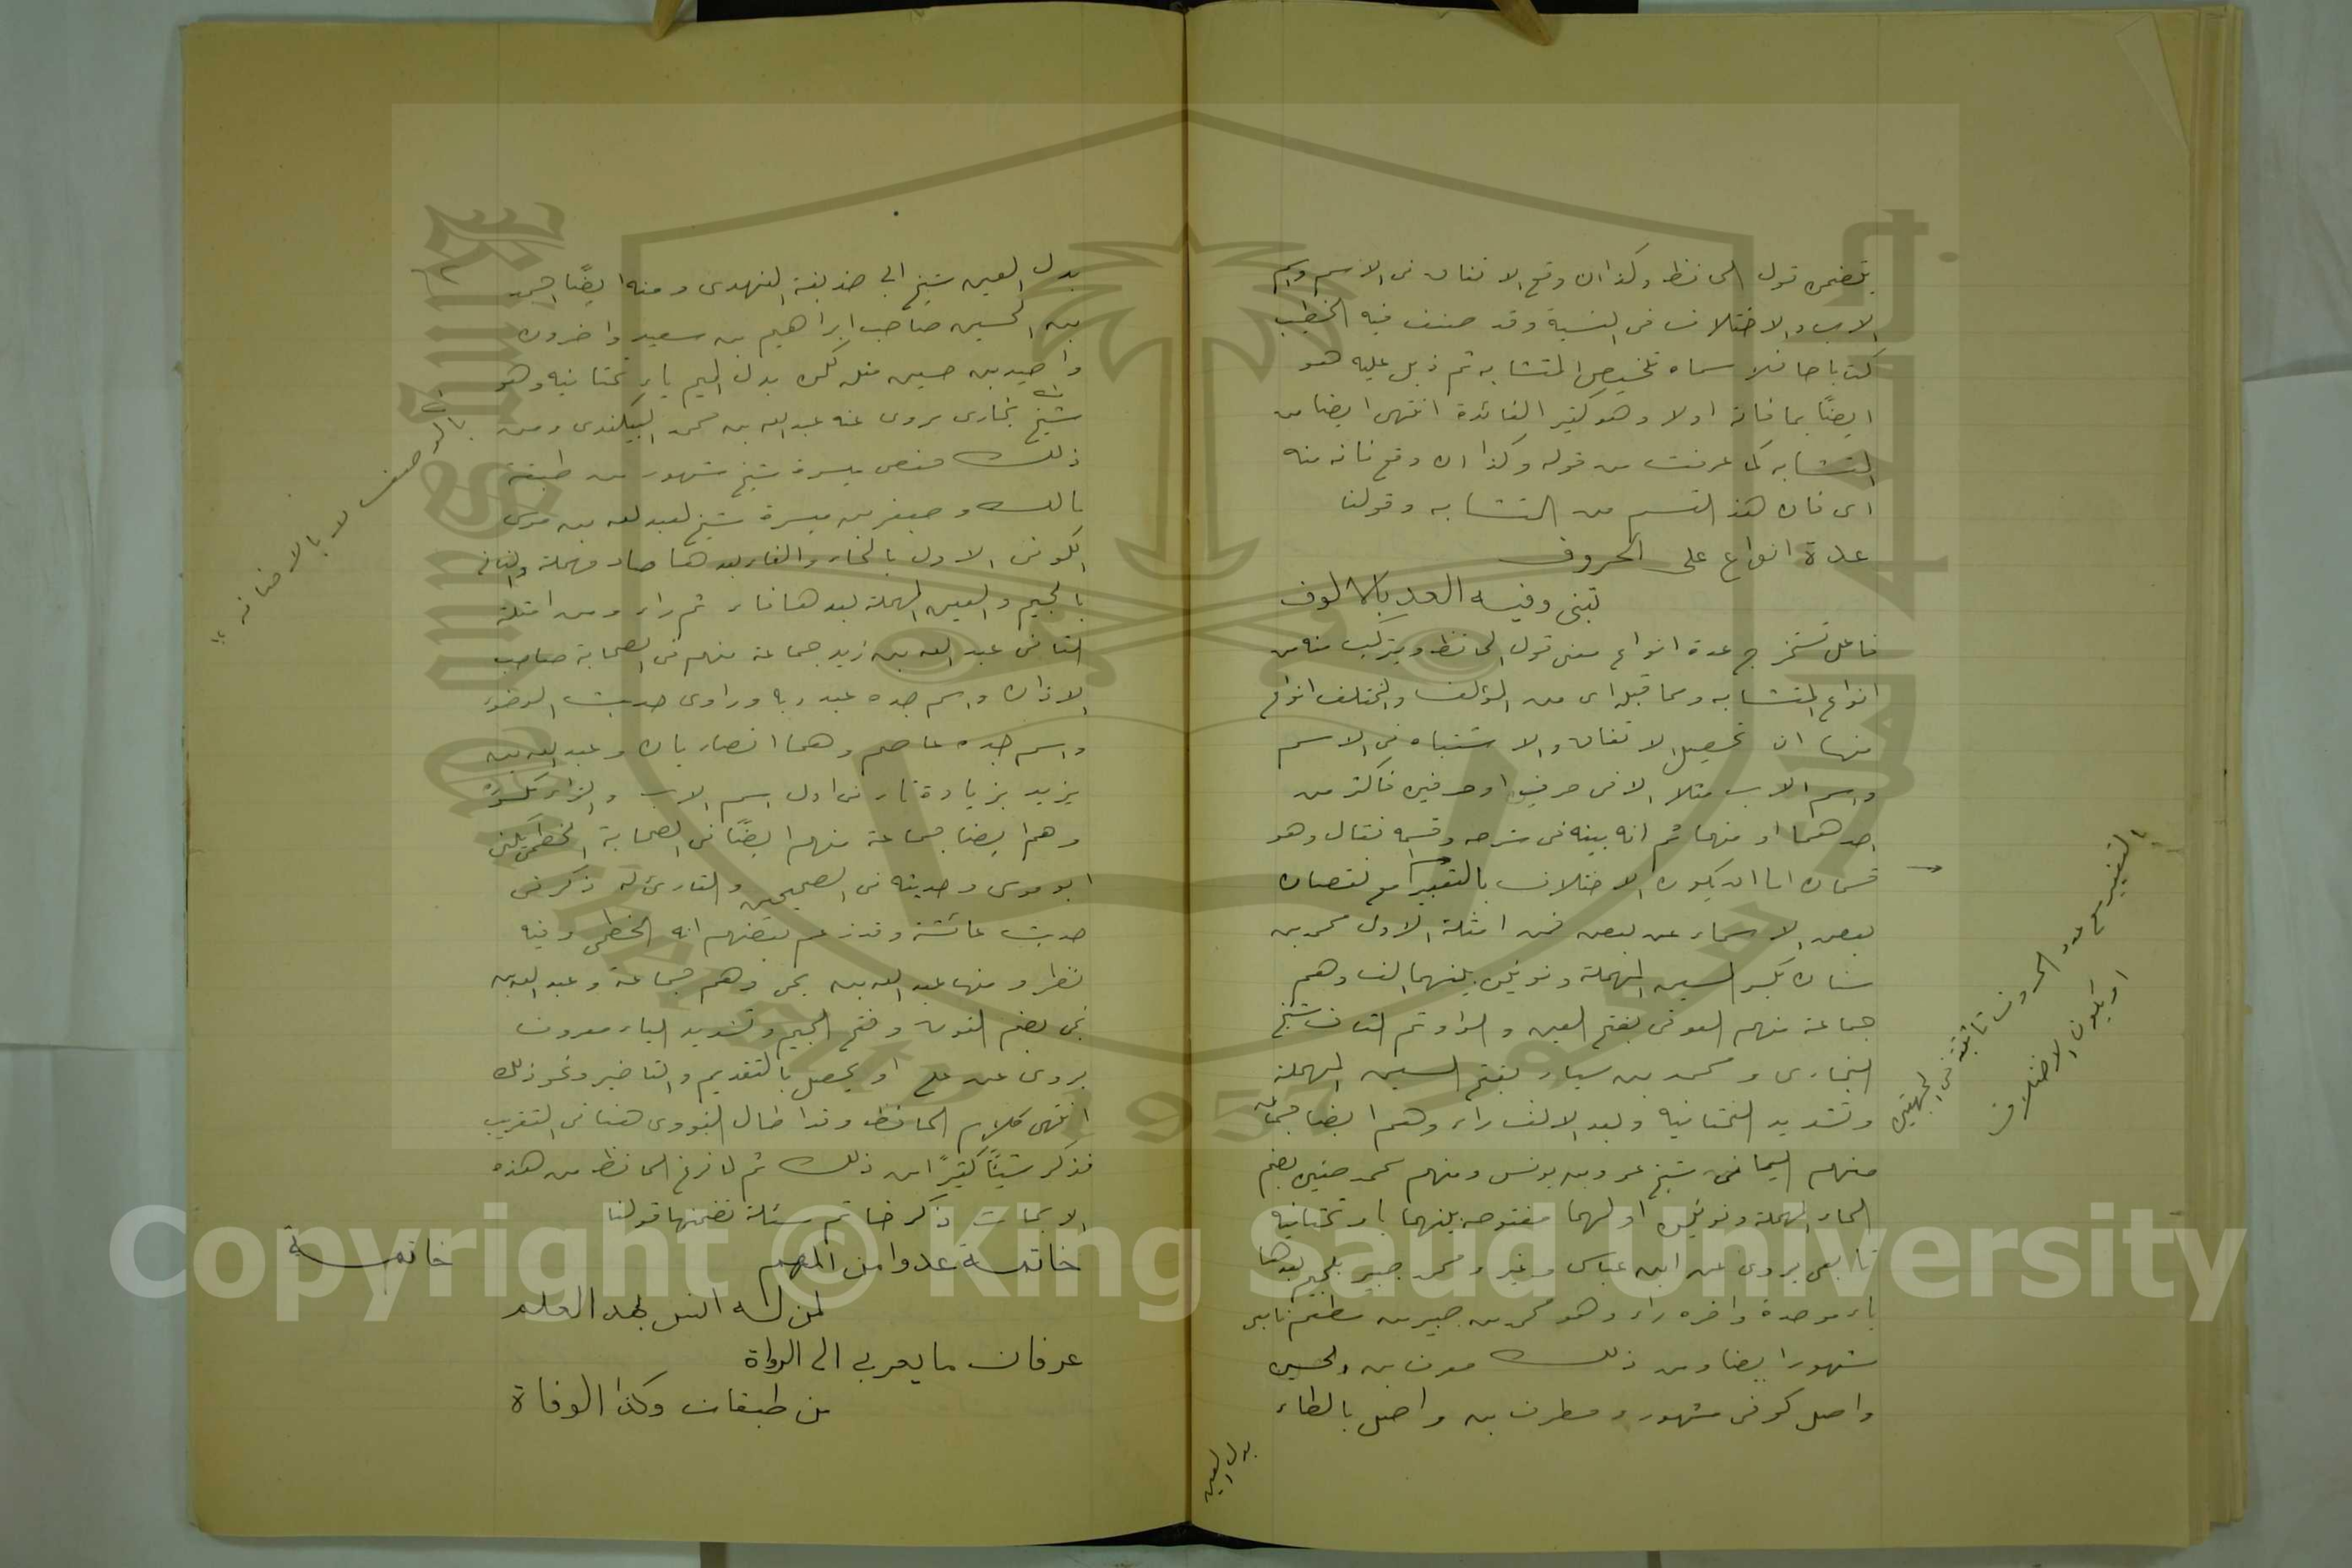 يتضمن قول الحافظ وكذا ان وقع الاتفاق في الاسم واسم
الاب والاختلاف في النسبة وقد صنف فيه الخطيب
كتابا حافلا سماه تلخيص المتشابه ثم ذيل عليه هو
ايضًا بما فاته اولا وهو كثير الفائدة انتهى ايضا من
المتشابه كما عرفت من قوله وكذا ان وقع فانه منه
اى فان هذا القسم من المتشابه وقولنا
عدة انواع على الحروف
تبنى وفيه العد بالالوف
فاعل تستخرج عدة انواع معنى قول الحافظ ويتركب منه من
انواع المتشابه ومما قبله اى من المؤتلف والمختلف انواع
منها ان يحصل الاتفاق والاشتباه في الاسم
واسم الاب مثلا الا في حرف او حرفين فاكثر من
احدهما او منهما ثم انه بينه في شرحه وقسمه فقال وهو
قسمان اما ان يكون الاختلاف بالتغيير مع نقصان
بعض الاسماء عن بعض فمن امثلة الاول محمد بن
سنان بكسر السين المهملة ونونين بينهما الف وهم
جماعة منهم العوفى بفتح العين والواو ثم القاف شيخ
البخارى ومحمد بن سيار بفتح السين المهملة
وتشديد التحتانية وبعد الالف راء وهم ايضا جماعة
منهم اليمانى شيخ عمر وبن يونس ومنهم محمد حنين بضم
الحاء المهملة ونونين اولهما مفتوحه بينهما ياء تحتانية
تابعى يروى عن ابن عباس وغيره ومحمد جبير بالجيم بعدها
باء موحدة واخره راء وهو محمد بن جبير بن مطعم تابعى
مشهور ايضا ومن ذلك معرف بن واصل كوفى مشهور ومطرف بن واصل بالطاء
بدل العين
بالتغيير مع عدد الحروف ثابتة في الجهتين
او يكون الاختلاف
بدل العين شيخ ابى حذيفة النهدى ومنه ايضًا احمد
بن الحسين صاحب ابراهيم بن سعيد واخرون
واحيد بن حسين مثله لكن بدل الميم ياء تحتانيه وهو
شيخ بخارى يروى عنه عبد الله بن محمد البيكندى ومن
ذلك حفص ميسرة شيخ مشهور من طبقة
مالك وجعفر بن ميسرة شيخ لعبد الله بن موسى
الكوفى الاول بالخاء والفاء بعدها صاد مهملة والثانى
بالجيم والعين المهملة بعدها فاء ثم راء ومن امثلة
الثانى عبد الله بن زيد جماعة منهم في الصحابة صاحب
الاذان واسم جده عبد ربه وراوى حديث الوضوء
واسم جده عاصم وهما انصاريان وعبد الله بن
يزيد بزيادة ياء في اول اسم الاب والزاى مكسورة
وهم ايضا جماعة منهم ايضًا في الصحابة الخطمى يكنى
ابو موسى وحديثه في الصحيحين والقارئ له ذكر في
حديث عائشة وقد زعم بعضهم انه الخطمى وفيه
نظر ومنها عبد الله بن يحى وهم جماعة وعبد الله بن
نجى بضم النون وفتح الجيم وتشديد الياء معروف
يروى عن على او يحصل بالتقديم والتاخير ونحو ذلك
انتهى كلام الحافظ وقد اطال النووى هنا في التقريب
فذكر شيئًا كثيرًا من ذلك ثم لما فرغ الحافظ من هذه
الابحاث ذكر خاتمه مسئلة تضمنها قولنا
خاتمة عدوا من المهم
خاتمة
لمن له انس بهذا العلم
عرفان ما يعزى الى الرواة
من طبقات وكذا الوفاة
بالوصف لا بالاضافة
Copyright © King Saud University
1957